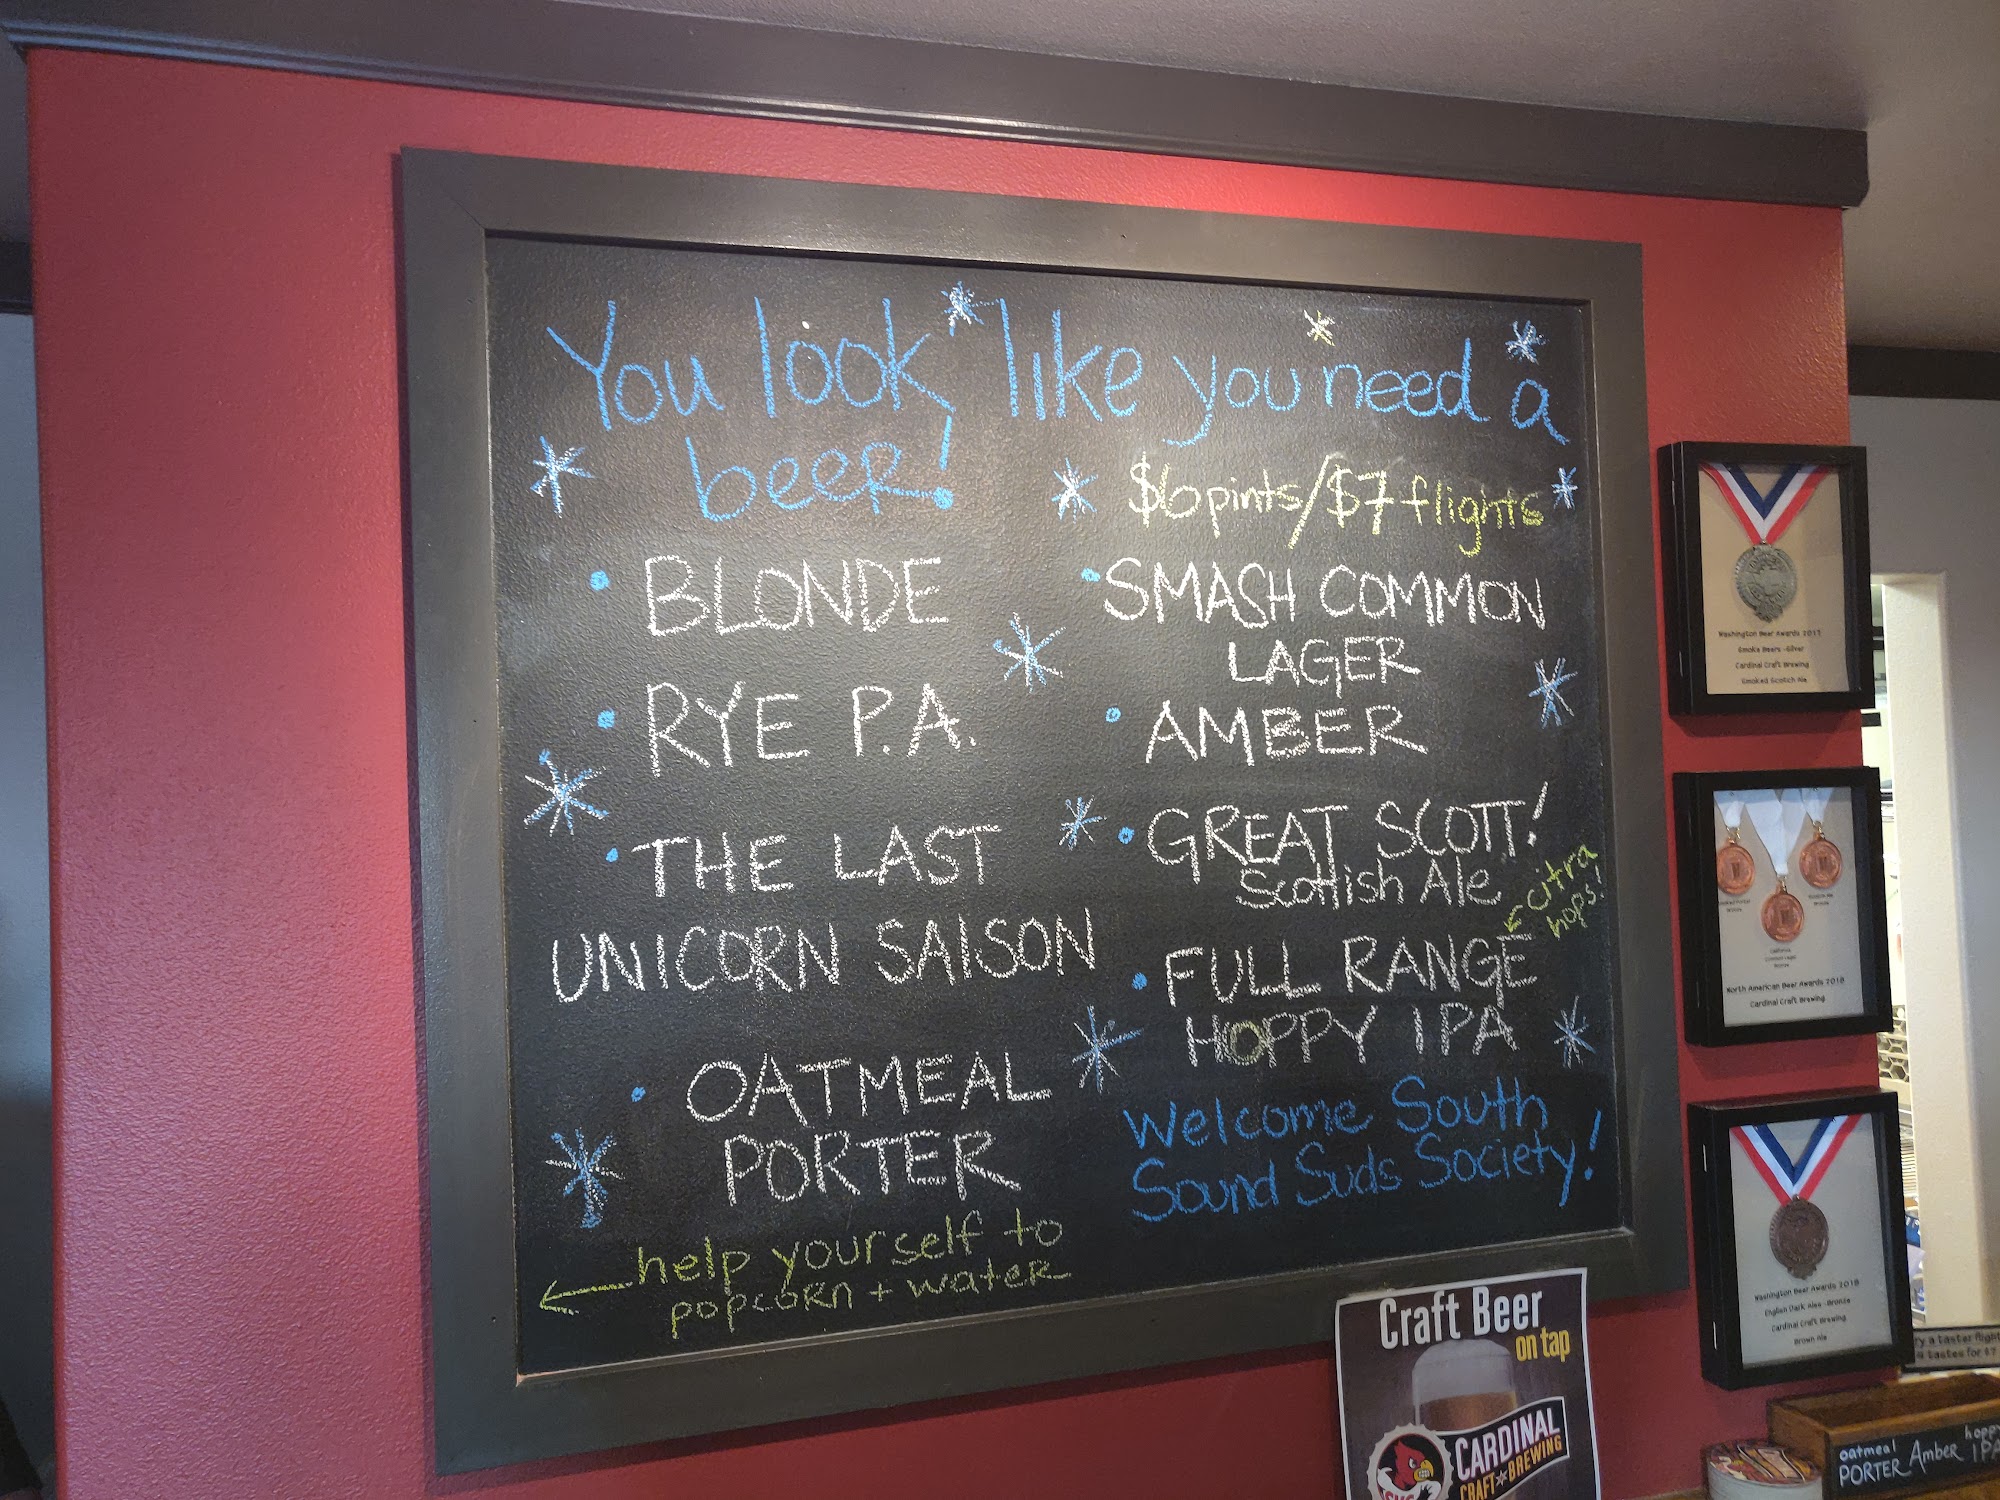 You look like you need a
beer!
$6 pints/$7 flights
• BLONDE
• RYE P.A.
• THE LAST
UNICORN SAISON
• OATMEAL
PORTER
help yourself to
popcorn + water
• SMASH COMMON
LAGER
• AMBER
• GREAT SCOTT!
Scottish Ale
citra
hops!
• FULL RANGE
HOPPY IPA
Welcome South
Sound Suds Society!
Washington Beer Awards 2017
Smoke Beers -Silver
Cardinal Craft Brewing
Smoked Scotch Ale
Bronze
Bronze
California
Common Lager
Bronze
North American Beer Awards 2018
Cardinal Craft Brewing
Washington Beer Awards 2018
English Dark Ales -Bronze
Cardinal Craft Brewing
Brown Ale
Craft Beer
on tap
CARDINAL
CRAFT BREWING
ry a taster flight
4 tastes for $7
oatmeal
PORTER
Amber
hoppy
IPA